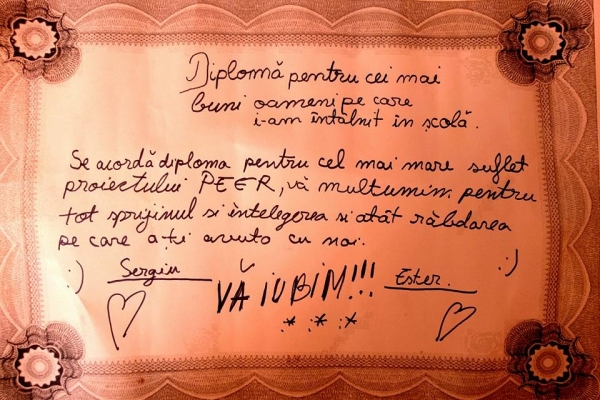 Diplomă pentru cei mai
buni oameni pe care
i-am întâlnit în școlă.
Se acordă diploma pentru cel mai mare suflet
proiectului PEER, vă multumim pentru
tot sprijinul si întelegerea si atât răbdarea
pe care a-ti avuto cu noi.
:) Sergiu VĂ IUBIM!!! Ester. :)